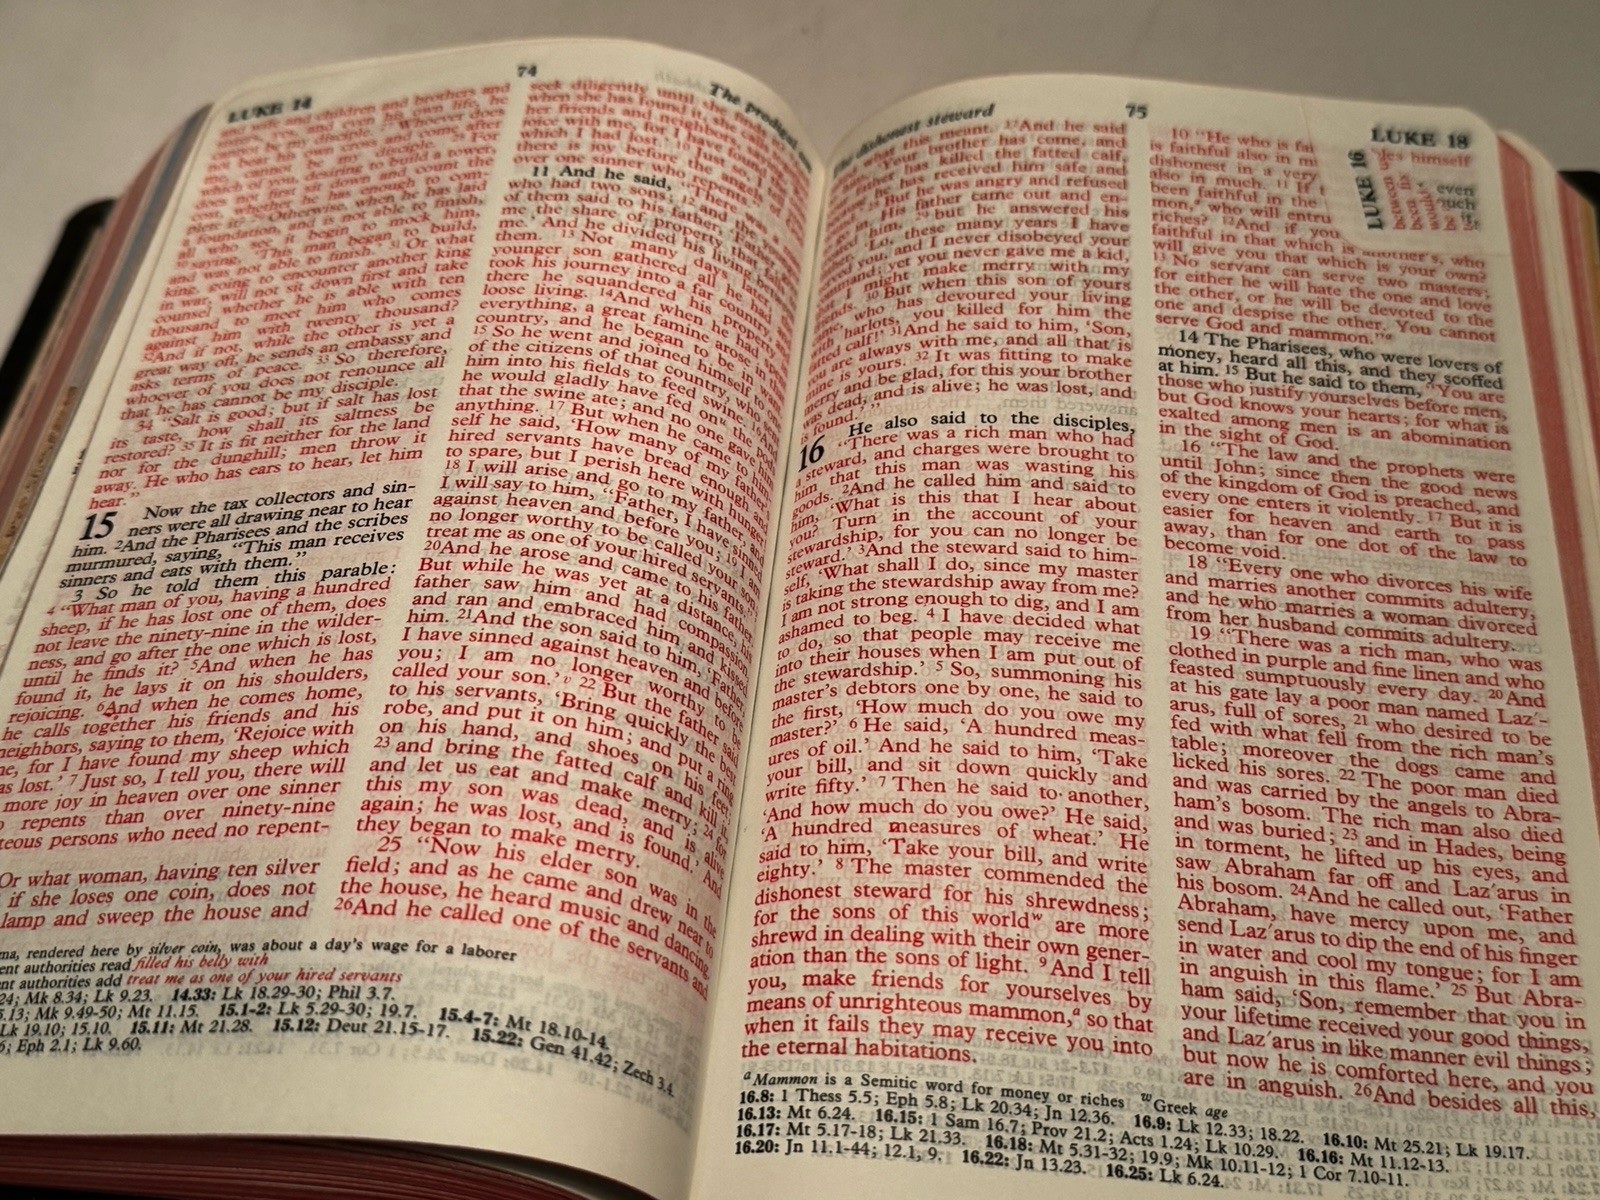 LUKE 14
74
The prodigal
and wife and children and brothers and
sisters, yes, and even his own life, he
cannot be my disciple. 27 Whoever does
not bear his own cross and come after
me, cannot be my disciple. 28 For
which of you, desiring to build a tower,
does not first sit down and count the
cost, whether he has enough to com-
plete it? 29 Otherwise, when he has laid
a foundation, and is not able to finish,
all who see it begin to mock him,
30 saying, 'This man began to build,
and was not able to finish.' 31 Or what
king, going to encounter another king
in war, will not sit down first and take
counsel whether he is able with ten
thousand to meet him who comes
against him with twenty thousand?
32 And if not, while the other is yet a
great way off, he sends an embassy and
asks terms of peace. 33 So therefore,
whoever of you does not renounce all
that he has cannot be my disciple.
34 "Salt is good; but if salt has lost
its taste, how shall its saltness be
restored? 35 It is fit neither for the land
nor for the dunghill; men throw it
away. He who has ears to hear, let him
hear."
15 Now the tax collectors and sin-
ners were all drawing near to hear
him. 2 And the Pharisees and the scribes
murmured, saying, "This man receives
sinners and eats with them."
3 So he told them this parable:
4 "What man of you, having a hundred
sheep, if he has lost one of them, does
not leave the ninety-nine in the wilder-
ness, and go after the one which is lost,
until he finds it? 5 And when he has
found it, he lays it on his shoulders,
rejoicing. 6 And when he comes home,
he calls together his friends and his
neighbors, saying to them, 'Rejoice with
me, for I have found my sheep which
was lost.' 7 Just so, I tell you, there will
more joy in heaven over one sinner
repents than over ninety-nine
teous persons who need no repent-
Or what woman, having ten silver
if she loses one coin, does not
lamp and sweep the house and
seek diligently until she finds
when she has found it, she calls
her friends and neighbors,
joice with me, for I have found
which I had lost.' 10 Just so, I
there is joy before the angels
over one sinner who repents."
11 And he said, "There was a
who had two sons; 12 and the
of them said to his father, 'Father,
me the share of property that
me.' And he divided his living between
them. 13 Not many days later, the
younger son gathered all he had and
took his journey into a far country, and
there he squandered his property in
loose living. 14 And when he had spent
everything, a great famine arose in that
country, and he began to be in want.
15 So he went and joined himself to one
of the citizens of that country, who sent
him into his fields to feed swine. 16 And
he would gladly have fed on u the pods
that the swine ate; and no one gave him
anything. 17 But when he came to him-
self he said, 'How many of my father's
hired servants have bread enough and
to spare, but I perish here with hunger!
18 I will arise and go to my father, and
I will say to him, "Father, I have sinned
against heaven and before you; 19 I am
no longer worthy to be called your son;
treat me as one of your hired servants."'
20 And he arose and came to his father.
But while he was yet at a distance, his
father saw him and had compassion,
and ran and embraced him and kissed
him. 21 And the son said to him, 'Father,
I have sinned against heaven and before
you; I am no longer worthy to be
called your son.' v 22 But the father said
to his servants, 'Bring quickly the best
robe, and put it on him; and put a ring
on his hand, and shoes on his feet;
23 and bring the fatted calf and kill it,
and let us eat and make merry; 24 for
this my son was dead, and is alive
again; he was lost, and is found.' And
they began to make merry.
25 "Now his elder son was in the
field; and as he came and drew near to
the house, he heard music and dancing.
26 And he called one of the servants and
ma, rendered here by silver coin, was about a day's wage for a laborer
ent authorities read filled his belly with
ent authorities add treat me as one of your hired servants
24; Mk 8.34; Lk 9.23. 14.33: Lk 18.29-30; Phil 3.7.
5.13; Mk 9.49-50; Mt 11.15. 15.1-2: Lk 5.29-30; 19.7. 15.4-7: Mt 18.10-14.
Lk 19.10; 15.10. 15.11: Mt 21.28. 15.12: Deut 21.15-17. 15.22: Gen 41.42; Zech 3.4
6; Eph 2.1; Lk 9.60.
dishonest steward
75
LUKE 18
what this meant. 27 And he said
'Your brother has come, and
father has killed the fatted calf,
he has received him safe and
28 But he was angry and refused
His father came out and en-
him, 29 but he answered his
'Lo, these many years I have
you, and I never disobeyed your
command; yet you never gave me a kid,
that I might make merry with my
friends. 30 But when this son of yours
who has devoured your living
with harlots, you killed for him the
fatted calf!' 31 And he said to him, 'Son,
are always with me, and all that is
mine is yours. 32 It was fitting to make
merry and be glad, for this your brother
was dead, and is alive; he was lost, and
is found.'"
16 He also said to the disciples,
"There was a rich man who had
a steward, and charges were brought to
him that this man was wasting his
goods. 2 And he called him and said to
him, 'What is this that I hear about
you? Turn in the account of your
stewardship, for you can no longer be
steward.' 3 And the steward said to him-
self, 'What shall I do, since my master
is taking the stewardship away from me?
I am not strong enough to dig, and I am
ashamed to beg. 4 I have decided what
to do, so that people may receive me
into their houses when I am put out of
the stewardship.' 5 So, summoning his
master's debtors one by one, he said to
the first, 'How much do you owe my
master?' 6 He said, 'A hundred meas-
ures of oil.' And he said to him, 'Take
your bill, and sit down quickly and
write fifty.' 7 Then he said to another,
'And how much do you owe?' He said,
'A hundred measures of wheat.' He
said to him, 'Take your bill, and write
eighty.' 8 The master commended the
dishonest steward for his shrewdness;
for the sons of this world w are more
shrewd in dealing with their own gener-
ation than the sons of light. 9 And I tell
you, make friends for yourselves by
means of unrighteous mammon, a so that
when it fails they may receive you into
the eternal habitations.
10 "He who is fai
is faithful also in
dishonest in a very
also in much. 11 If
been faithful in the
mon, a who will entru
riches? 12 And if you
faithful in that which is another's, who
will give you that which is your own?
13 No servant can serve two masters;
for either he will hate the one and love
the other, or he will be devoted to the
one and despise the other. You cannot
serve God and mammon." a
14 The Pharisees, who were lovers of
money, heard all this, and they scoffed
at him. 15 But he said to them, "You are
those who justify yourselves before men,
but God knows your hearts; for what is
exalted among men is an abomination
in the sight of God.
16 "The law and the prophets were
until John; since then the good news
of the kingdom of God is preached, and
every one enters it violently. 17 But it is
easier for heaven and earth to pass
away, than for one dot of the law to
become void.
18 "Every one who divorces his wife
and marries another commits adultery,
and he who marries a woman divorced
from her husband commits adultery.
19 "There was a rich man, who was
clothed in purple and fine linen and who
feasted sumptuously every day. 20 And
at his gate lay a poor man named Laz'-
arus, full of sores, 21 who desired to be
fed with what fell from the rich man's
table; moreover the dogs came and
licked his sores. 22 The poor man died
and was carried by the angels to Abra-
ham's bosom. The rich man also died
and was buried; 23 and in Hades, being
in torment, he lifted up his eyes, and
saw Abraham far off and Laz'arus in
his bosom. 24 And he called out, 'Father
Abraham, have mercy upon me, and
send Laz'arus to dip the end of his finger
in water and cool my tongue; for I am
in anguish in this flame.' 25 But Abra-
ham said, 'Son, remember that you in
your lifetime received your good things,
and Laz'arus in like manner evil things;
but now he is comforted here, and you
are in anguish. 26 And besides all this,
LUKE 16
himself
even
a Mammon is a Semitic word for money or riches w Greek age
16.8: 1 Thess 5.5; Eph 5.8; Lk 20.34; Jn 12.36. 16.9: Lk 12.33; 18.22. 16.10: Mt 25.21; Lk 19.17.
16.13: Mt 6.24. 16.15: 1 Sam 16.7; Prov 21.2; Acts 1.24; Lk 10.29. 16.16: Mt 11.12-13.
16.17: Mt 5.17-18; Lk 21.33. 16.18: Mt 5.31-32; 19.9; Mk 10.11-12; 1 Cor 7.10-11.
16.20: Jn 11.1-44; 12.1, 9. 16.22: Jn 13.23. 16.25: Lk 6.24.